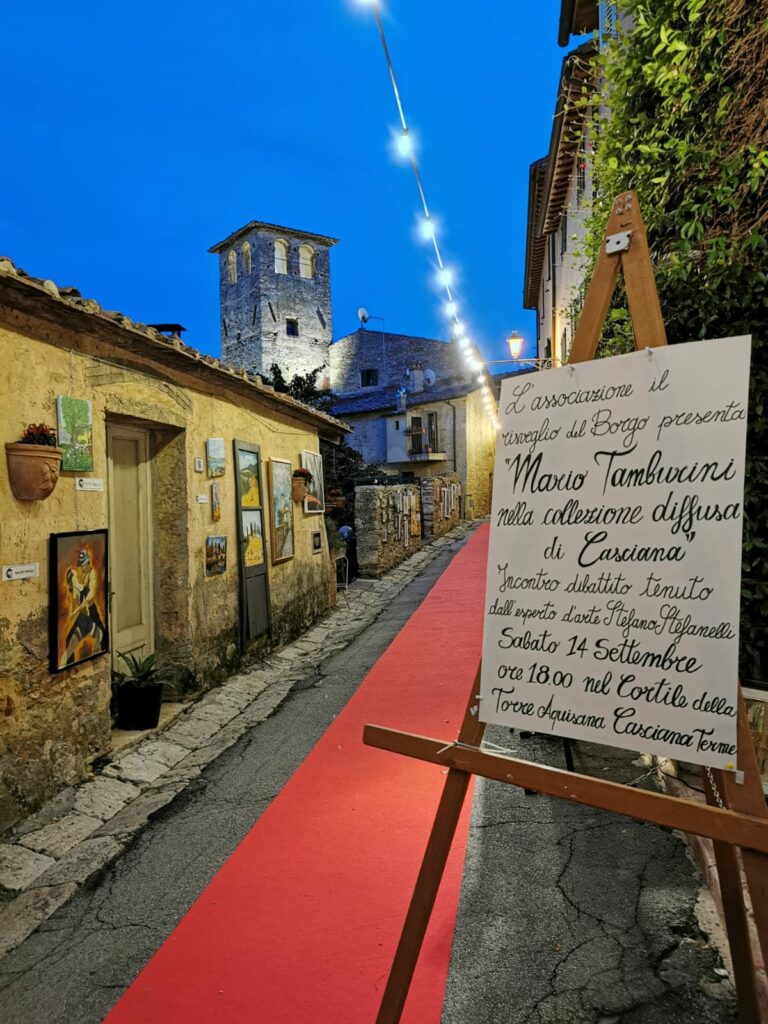 L'associazione il
risveglio del Borgo presenta
"Mario Tamburini
nella collezione diffusa
di Casciana"
Incontro dibattito tenuto
dall'esperto d'arte Stefano Stefanelli
Sabato 14 Settembre
ore 18.00 nel Cortile della
Torre Aquisana Casciana Terme